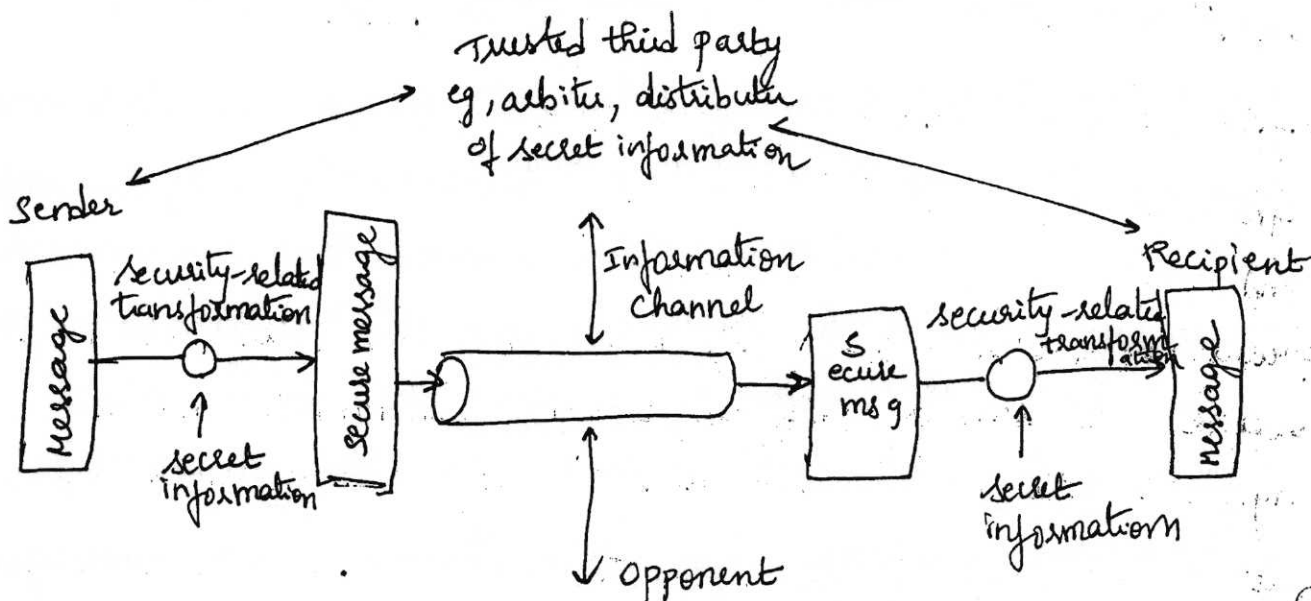 Trusted third party
eg, arbiter, distributer
of secret information
Sender
Message
security-related
transformation
secret
information
secure message
Information
channel
Opponent
S
ecure
msg
security-related
transform
ation
secret
information
Recipient
Message